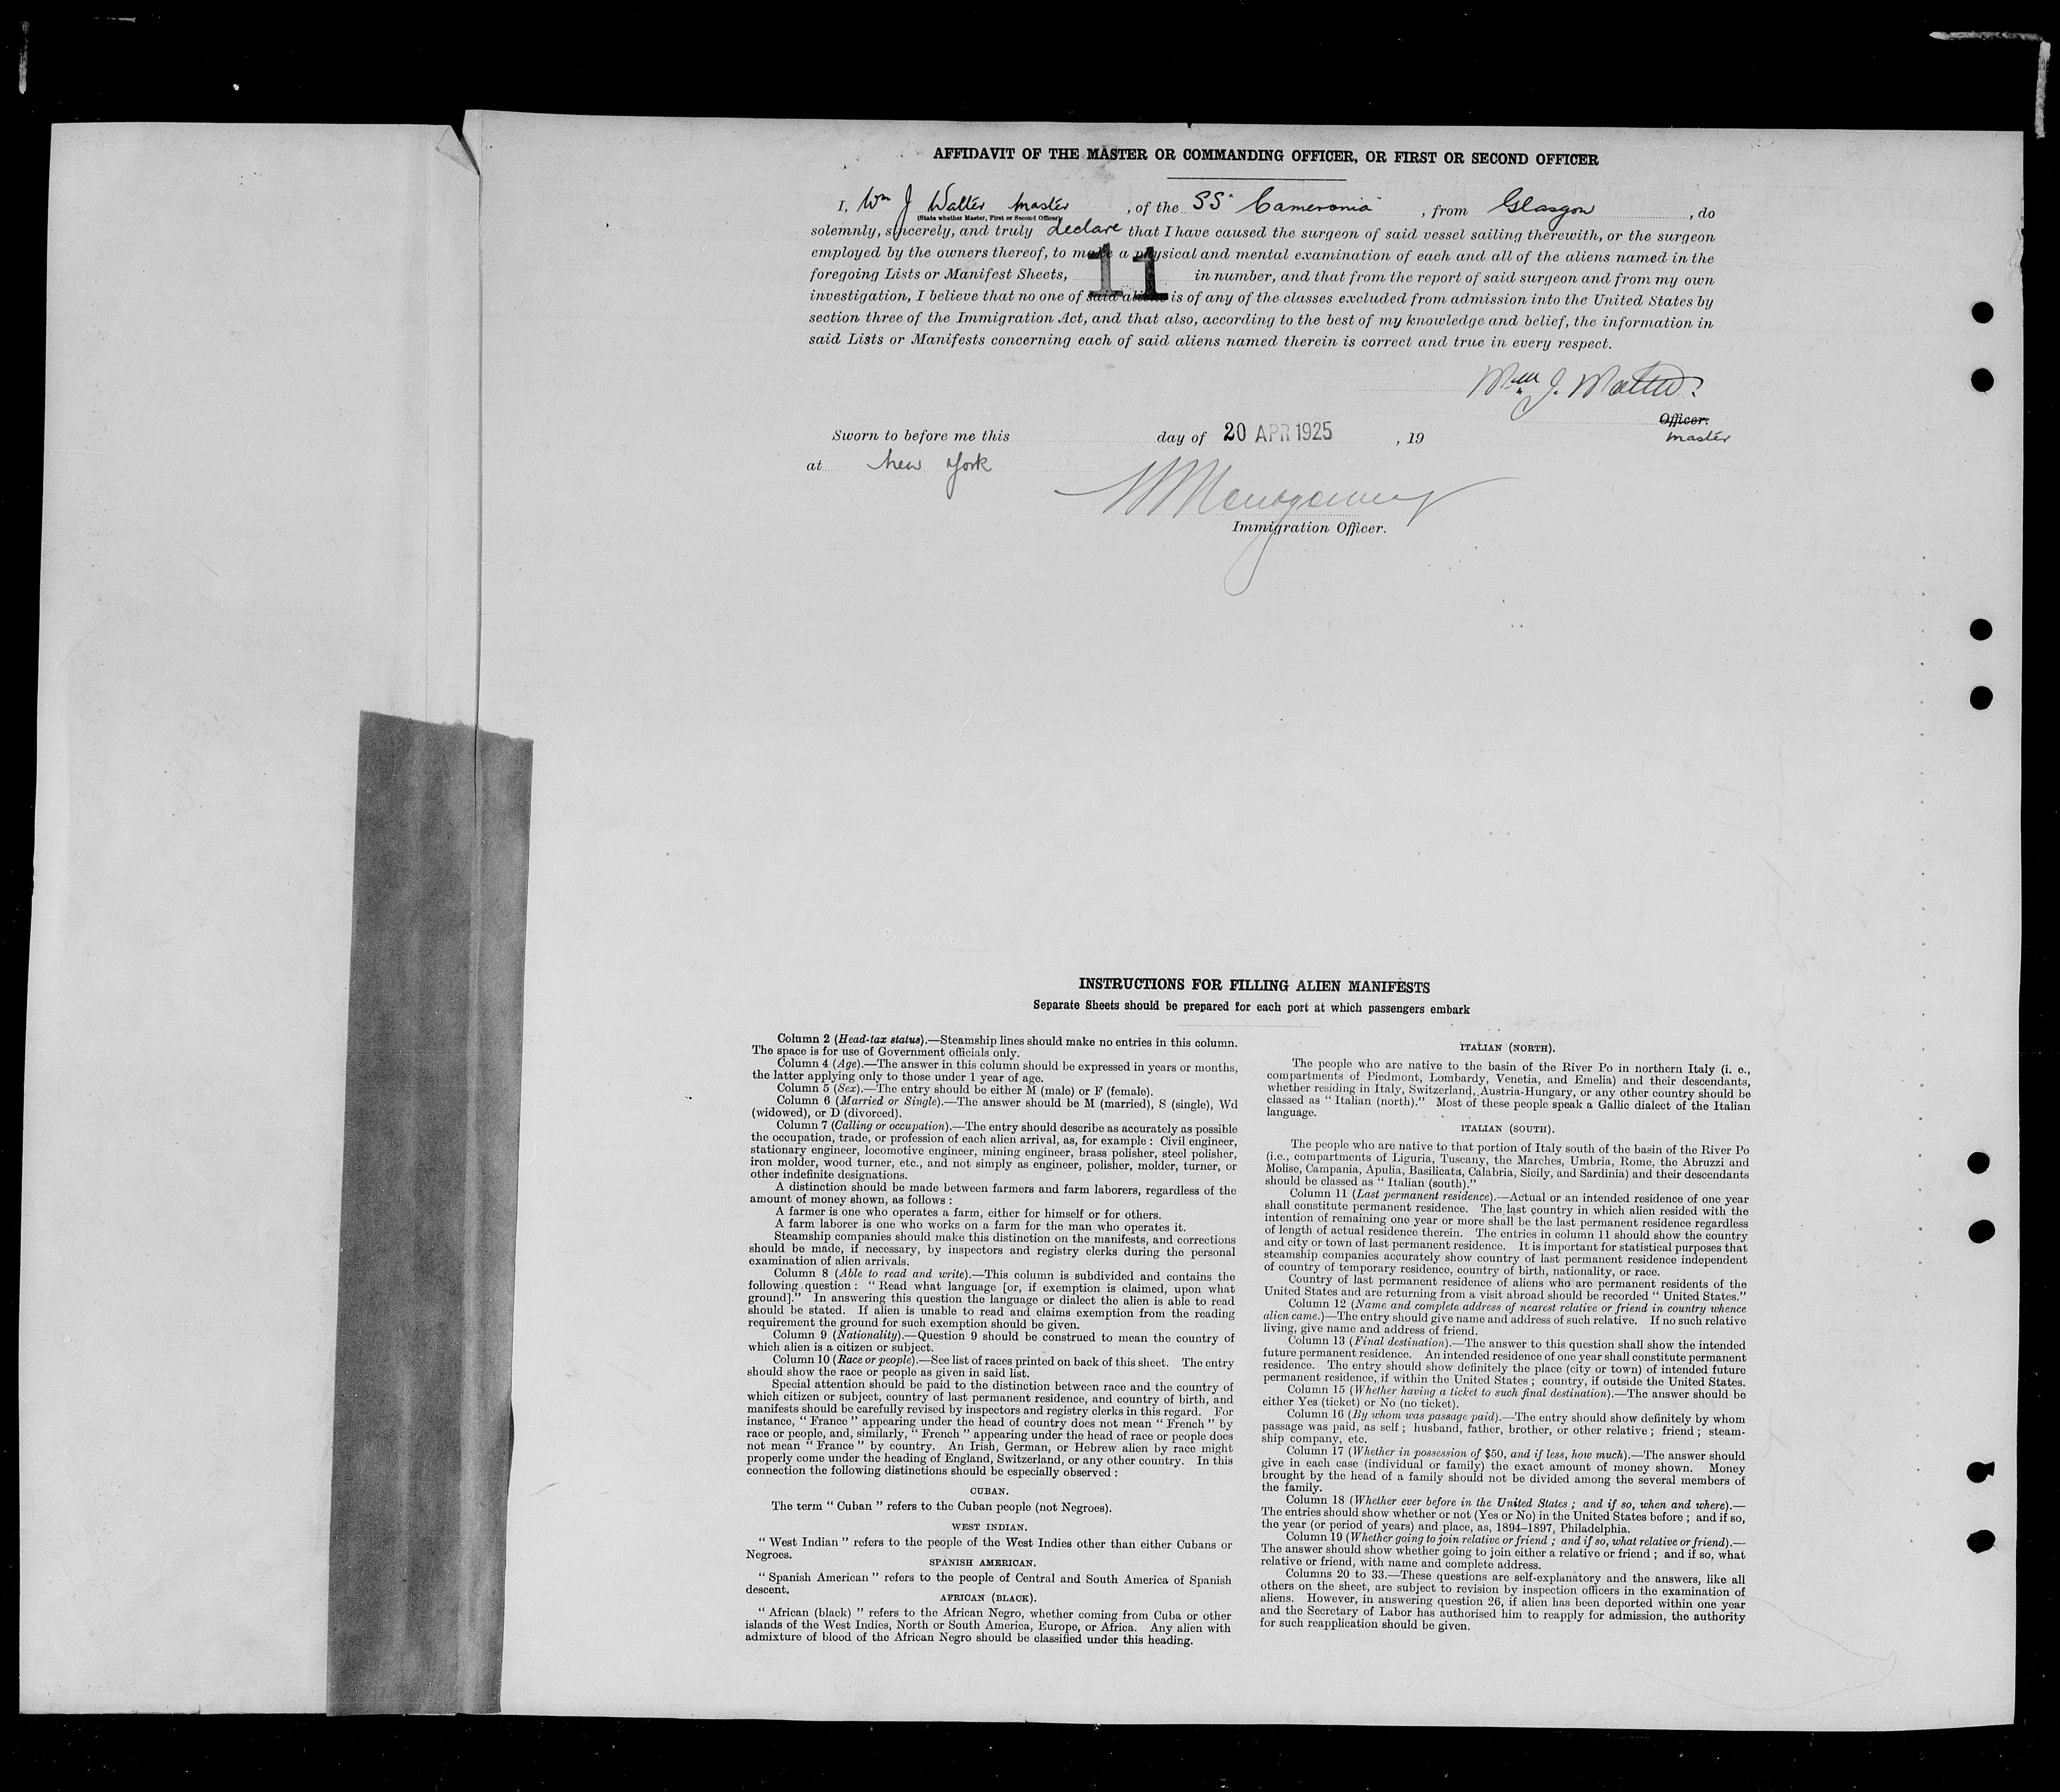 AFFIDAVIT OF THE MASTER OR COMMANDING OFFICER, OR FIRST OR SECOND OFFICER
I, Wm J Walter Master, of the SS "Cameronia", from Glasgow, do
(State whether Master, First or Second Officer)
solemnly, sincerely, and truly declare that I have caused the surgeon of said vessel sailing therewith, or the surgeon
employed by the owners thereof, to make a physical and mental examination of each and all of the aliens named in the
foregoing Lists or Manifest Sheets, 11 in number, and that from the report of said surgeon and from my own
investigation, I believe that no one of said aliens is of any of the classes excluded from admission into the United States by
section three of the Immigration Act, and that also, according to the best of my knowledge and belief, the information in
said Lists or Manifests concerning each of said aliens named therein is correct and true in every respect.
Wm J. Walter
Officer.
Master
Sworn to before me this day of 20 APR 1925, 19
at New York
Montgomery
Immigration Officer.
INSTRUCTIONS FOR FILLING ALIEN MANIFESTS
Separate Sheets should be prepared for each port at which passengers embark
Column 2 (Head-tax status).—Steamship lines should make no entries in this column.
The space is for use of Government officials only.
Column 4 (Age).—The answer in this column should be expressed in years or months,
the latter applying only to those under 1 year of age.
Column 5 (Sex).—The entry should be either M (male) or F (female).
Column 6 (Married or Single).—The answer should be M (married), S (single), Wd
(widowed), or D (divorced).
Column 7 (Calling or occupation).—The entry should describe as accurately as possible
the occupation, trade, or profession of each alien arrival, as, for example : Civil engineer,
stationary engineer, locomotive engineer, mining engineer, brass polisher, steel polisher,
iron molder, wood turner, etc., and not simply as engineer, polisher, molder, turner, or
other indefinite designations.
A distinction should be made between farmers and farm laborers, regardless of the
amount of money shown, as follows :
A farmer is one who operates a farm, either for himself or for others.
A farm laborer is one who works on a farm for the man who operates it.
Steamship companies should make this distinction on the manifests, and corrections
should be made, if necessary, by inspectors and registry clerks during the personal
examination of alien arrivals.
Column 8 (Able to read and write).—This column is subdivided and contains the
following question : " Read what language [or, if exemption is claimed, upon what
ground]." In answering this question the language or dialect the alien is able to read
should be stated. If alien is unable to read and claims exemption from the reading
requirement the ground for such exemption should be given.
Column 9 (Nationality).—Question 9 should be construed to mean the country of
which alien is a citizen or subject.
Column 10 (Race or people).—See list of races printed on back of this sheet. The entry
should show the race or people as given in said list.
Special attention should be paid to the distinction between race and the country of
which citizen or subject, country of last permanent residence, and country of birth, and
manifests should be carefully revised by inspectors and registry clerks in this regard. For
instance, " France " appearing under the head of country does not mean " French " by
race or people, and, similarly, " French " appearing under the head of race or people does
not mean " France " by country. An Irish, German, or Hebrew alien by race might
properly come under the heading of England, Switzerland, or any other country. In this
connection the following distinctions should be especially observed :
CUBAN.
The term " Cuban " refers to the Cuban people (not Negroes).
WEST INDIAN.
" West Indian " refers to the people of the West Indies other than either Cubans or
Negroes.
SPANISH AMERICAN.
" Spanish American " refers to the people of Central and South America of Spanish
descent.
AFRICAN (BLACK).
" African (black) " refers to the African Negro, whether coming from Cuba or other
islands of the West Indies, North or South America, Europe, or Africa. Any alien with
admixture of blood of the African Negro should be classified under this heading.
ITALIAN (NORTH).
The people who are native to the basin of the River Po in northern Italy (i. e.,
compartments of Piedmont, Lombardy, Venetia, and Emelia) and their descendants,
whether residing in Italy, Switzerland, Austria-Hungary, or any other country should be
classed as " Italian (north)." Most of these people speak a Gallic dialect of the Italian
language.
ITALIAN (SOUTH).
The people who are native to that portion of Italy south of the basin of the River Po
(i.e., compartments of Liguria, Tuscany, the Marches, Umbria, Rome, the Abruzzi and
Molise, Campania, Apulia, Basilicata, Calabria, Sicily, and Sardinia) and their descendants
should be classed as " Italian (south)."
Column 11 (Last permanent residence).—Actual or an intended residence of one year
shall constitute permanent residence. The last country in which alien resided with the
intention of remaining one year or more shall be the last permanent residence regardless
of length of actual residence therein. The entries in column 11 should show the country
and city or town of last permanent residence. It is important for statistical purposes that
steamship companies accurately show country of last permanent residence independent
of country of temporary residence, country of birth, nationality, or race.
Country of last permanent residence of aliens who are permanent residents of the
United States and are returning from a visit abroad should be recorded " United States."
Column 12 (Name and complete address of nearest relative or friend in country whence
alien came.)—The entry should give name and address of such relative. If no such relative
living, give name and address of friend.
Column 13 (Final destination).—The answer to this question shall show the intended
future permanent residence. An intended residence of one year shall constitute permanent
residence. The entry should show definitely the place (city or town) of intended future
permanent residence, if within the United States ; country, if outside the United States.
Column 15 (Whether having a ticket to such final destination).—The answer should be
either Yes (ticket) or No (no ticket).
Column 16 (By whom was passage paid).—The entry should show definitely by whom
passage was paid, as self ; husband, father, brother, or other relative ; friend ; steam-
ship company, etc.
Column 17 (Whether in possession of $50, and if less, how much).—The answer should
give in each case (individual or family) the exact amount of money shown. Money
brought by the head of a family should not be divided among the several members of
the family.
Column 18 (Whether ever before in the United States ; and if so, when and where).—
The entries should show whether or not (Yes or No) in the United States before ; and if so,
the year (or period of years) and place, as, 1894–1897, Philadelphia.
Column 19 (Whether going to join relative or friend ; and if so, what relative or friend).—
The answer should show whether going to join either a relative or friend ; and if so, what
relative or friend, with name and complete address.
Columns 20 to 33.—These questions are self-explanatory and the answers, like all
others on the sheet, are subject to revision by inspection officers in the examination of
aliens. However, in answering question 26, if alien has been deported within one year
and the Secretary of Labor has authorised him to reapply for admission, the authority
for such reapplication should be given.